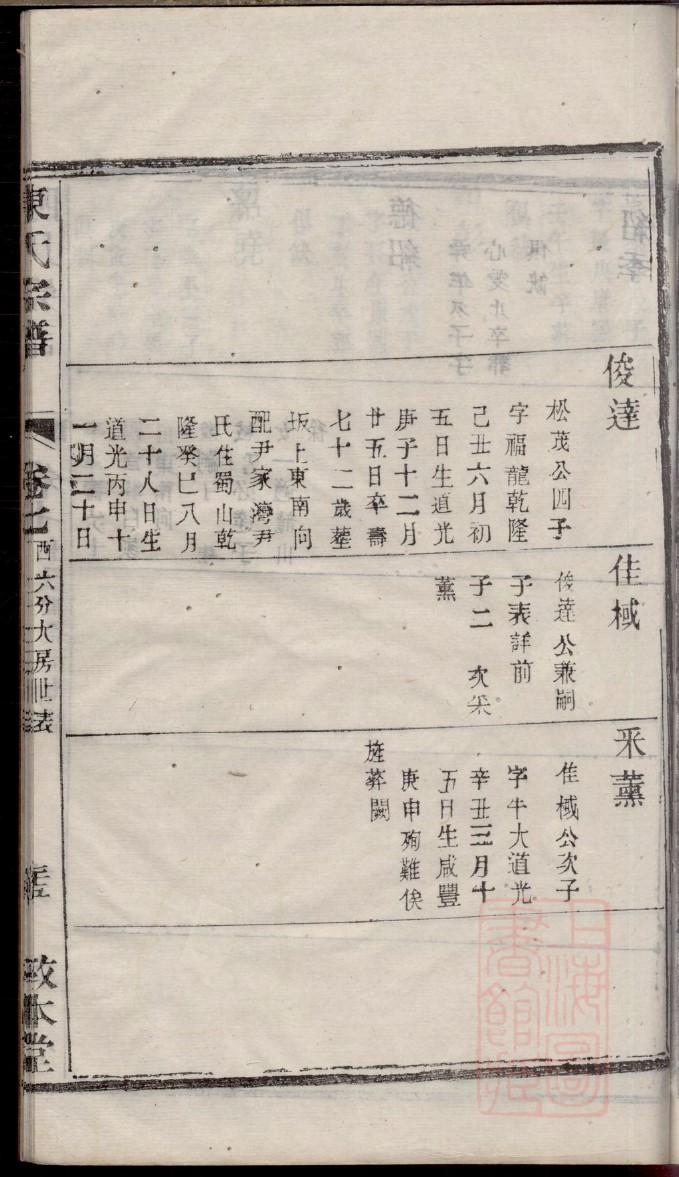 俊達
松茂公四子
字福龍乾隆
己丑六月初
五日生道光
庚子十二月
廿五日卒壽
七十二歲塟
坂上東南向
配尹家灣尹
氏住蜀山乾
隆癸巳八月
二十八日生
道光丙申十
一月二十日
佳棫
俊達公兼嗣
子表詳前
子二 次采
薰
采薰
佳棫公次子
字牛大道光
辛丑三月十
五日生咸豐
庚申殉難俟
旌葬闕
陳氏宗譜
卷七
西六分大房世表
敦本堂
上海圖書館藏